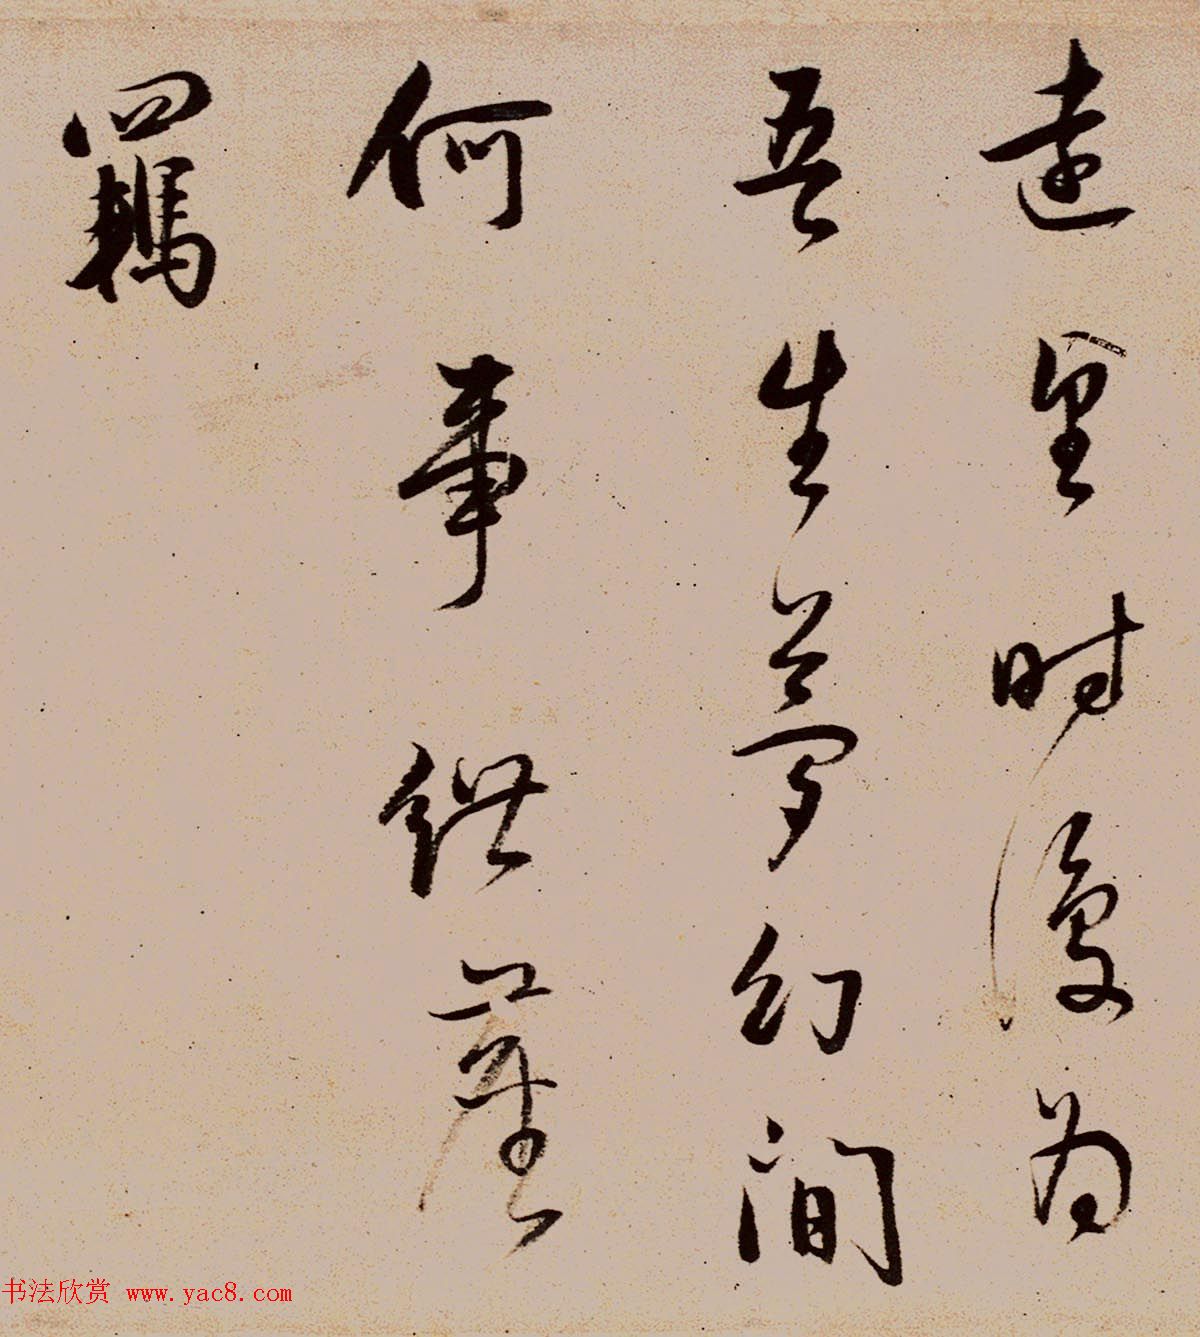 遠望時復為
吾生夢幻間
何事紲塵
羈
书法欣赏 www.yac8.com